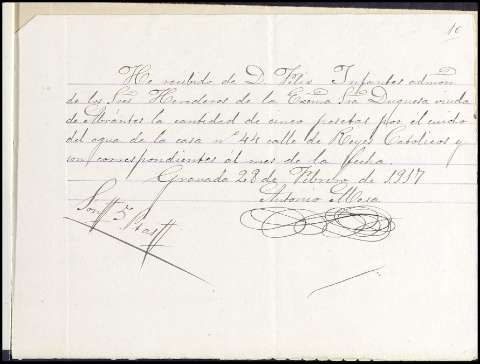 16
He recibido de D. Félix Infantes admón
de los Sres Herederos de la Excma Sra Duquesa viuda
de Abrántes la cantidad de cinco pesetas por el cuido
del agua de la casa nº 44 calle de Reyes Catolicos y
son correspondientes al mes de la fecha.
Granada 28 de Febrero de 1917
Antonio Mesa
Son 5 Ptas